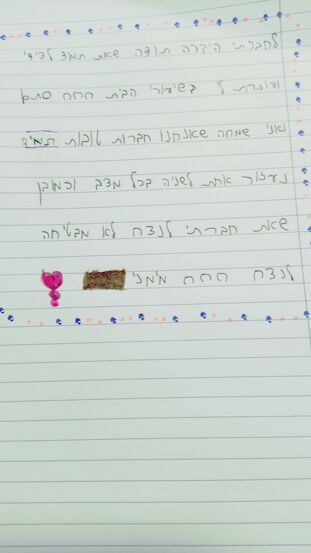 לחברתי היקרה תודה שאת תמיד לצידי
ועוזרת לי בשיעורי הבית חחח סתם
ואני שמחה שאנחנו חברות טובות תמיד
נעזור אחת לשניה בכל מצב וכמובן
שאת חברתי לנצח לא מבטיחה
לנצח חחח מימני